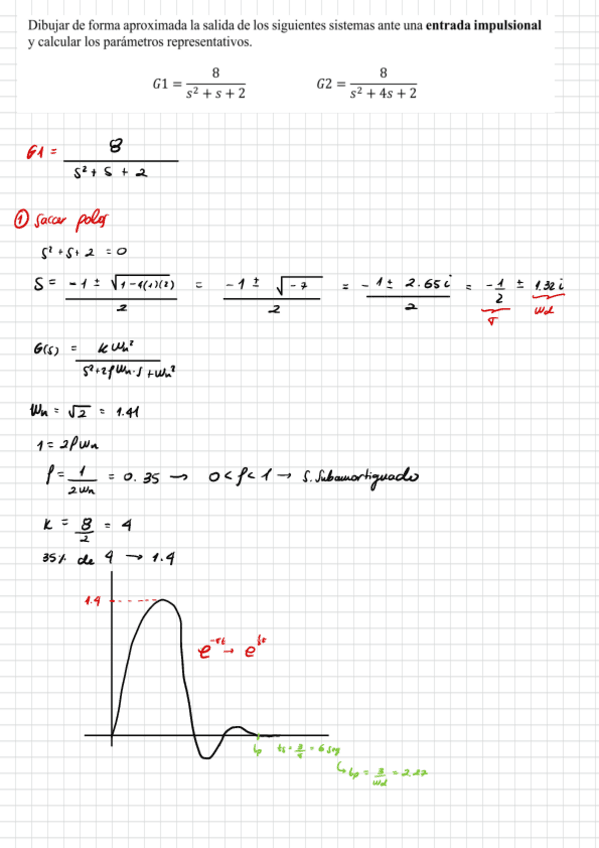 Dibujar de forma aproximada la salida de los siguientes sistemas ante una entrada impulsional
y calcular los parámetros representativos.
G1 = 8 / (s² + s + 2)    G2 = 8 / (s² + 4s + 2)
G1 = 8 / (s² + s + 2)
① Sacar polos
s² + s + 2 = 0
S = (-1 ± √(1-4(1)(2))) / 2 = (-1 ± √-7) / 2 = (-1 ± 2.65i) / 2 = -1/2 ± 1.32i
σ    wd
G(s) = k Wn² / (s² + 2ρWn·s + Wn²)
Wn = √2 = 1.41
1 = 2ρWn
ρ = 1 / 2Wn = 0.35 → 0 < ρ < 1 → S. Subamortiguado
k = 8/2 = 4
35% de 4 → 1.4
1.4